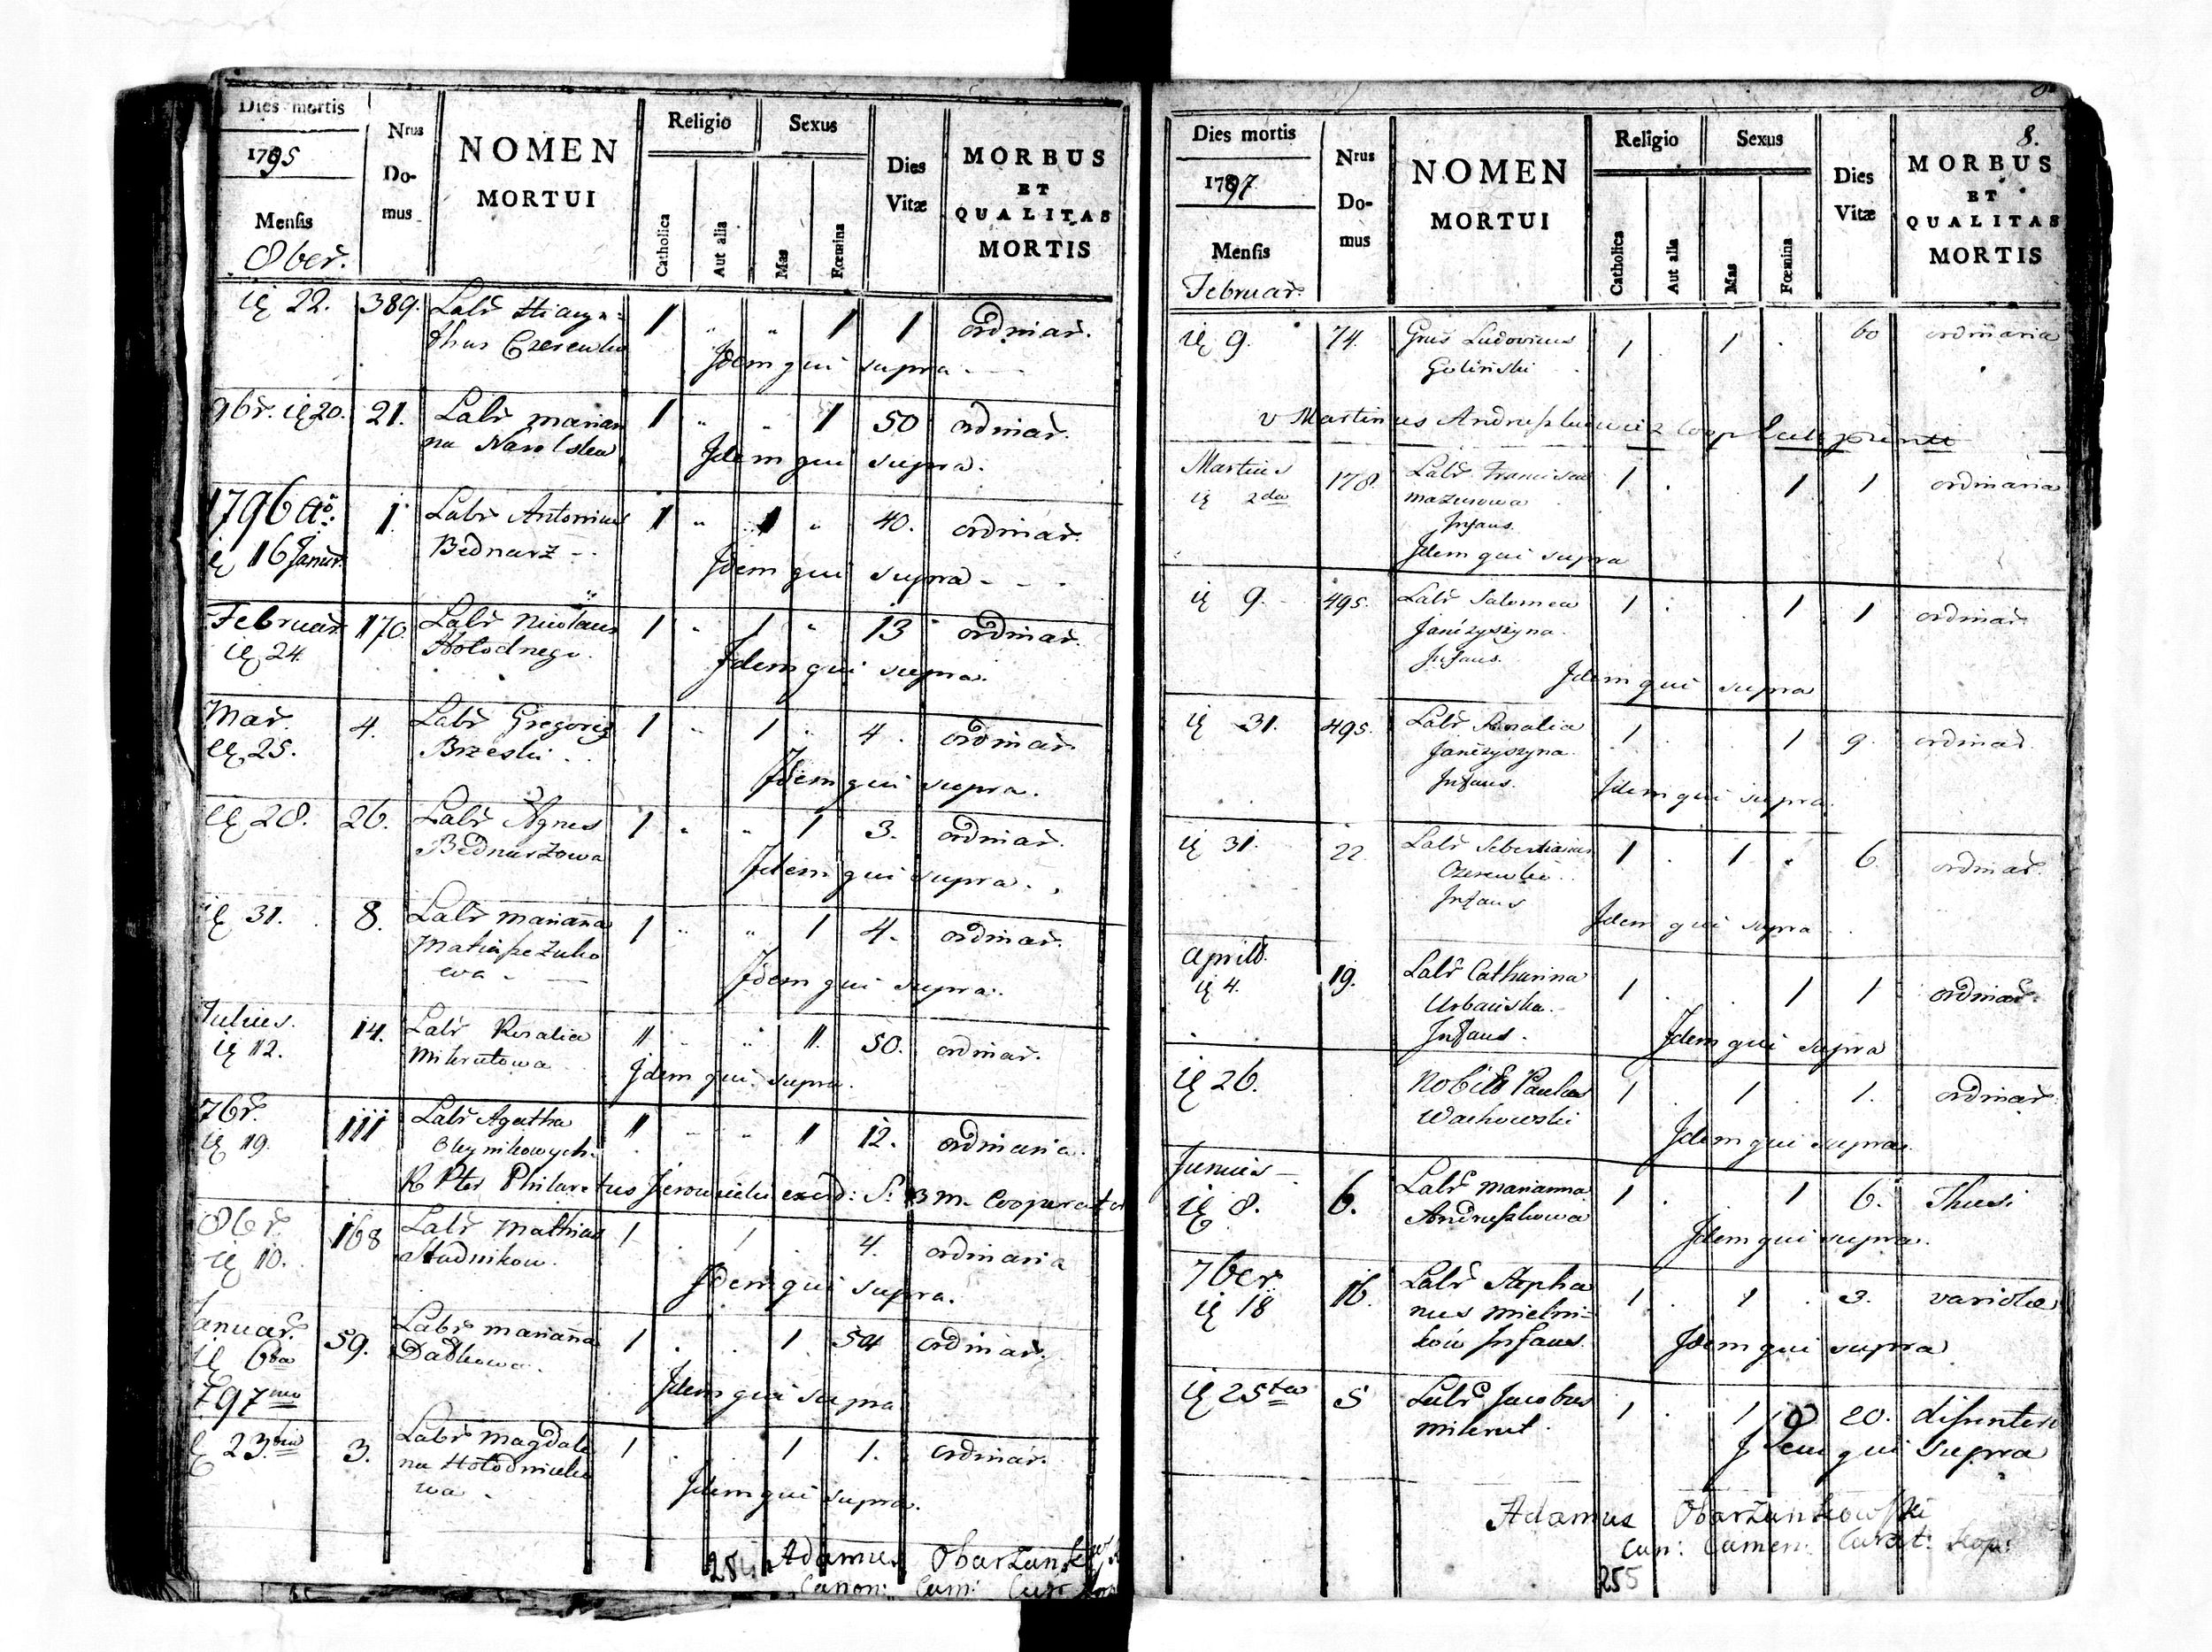 Dies mortis
1795
Mensis
8ber.
Nrus
Do-
mus
NOMEN
MORTUI
Religio
Catholica
Aut alia
Sexus
Mas
Fœmina
Dies
Vitæ
MORBUS
ET
QUALITAS
MORTIS
22. 389. Labr Hiacyn= 1 " " 1 1 ordinar.
thus
Idem qui supra
9br. 20. 21. Labr Marian 1 " " 1 50 ordinar.
na
Idem qui supra.
1796 1. Labr Antonius 1 " 1 " 40. ordinar.
16 Januar. Bednarz
Idem qui supra
Februar 170. Labr Nicolaus 1 " 1 " 13 ordinar.
24. Hołodnego.
Idem qui supra.
Mar. 4. Labr Gregorig 1 " 1 " 4. ordinar.
25. Brzeski
Idem qui supra.
28. 26. Labr Agnes 1 " " 1 3. ordinar.
Bednarzowa
Idem qui supra.
31. 8. Labr Mariana 1 " " 1 4. ordinar.
Idem qui supra.
Julius. 14. Labr Rosalia 1 " " 1 50. ordinar.
12. Mikrutowa
Idem qui supra.
7br. 111 Labr Agatha 1 " " 1 12. ordinaria.
19. Oleynikowych.
R Pter Philaretus
8br 168 Labr Mathias 1 . 1 . 4. ordinaria
10. Studnikow.
Idem qui supra.
Januar. 59. Labr Mariana 1 . . 1 54 ordinar.
6ta
Idem qui supra
797mo
23tia 3. Labr Magdale 1 . . 1 1. ordinar.
na
wa
Idem qui supra.
254 Adamus
Canon:
8.
Dies mortis
1797
Mensis
Februar.
Nrus
Do-
mus
NOMEN
MORTUI
Religio
Catholica
Aut alia
Sexus
Mas
Fœmina
Dies
Vitæ
MORBUS
ET
QUALITAS
MORTIS
9. 74. Ludovicus 1 . 1 . 60 ordinaria
Goliński
Martinus
Martius 178. Labr Francisca 1 . 1 1 ordinaria
2da Mazurowa
Infans.
Idem qui supra
9. 495. Labr Salomea 1 . 1 1 ordinar
Janczyszyna.
Infans.
Idem qui supra
31. 495. Labr Rosalia 1 . 1 9. ordinar.
Janczyszyna.
Infans.
Idem qui supra.
31. 22. Labr Sebastianus 1 . 1 . 6. ordinar.
Infans
Idem qui supra
Aprilis. 19. Labr Catharina 1 . . 1 1 ordinar.
4. Urbańska.
Infans.
Idem qui supra
26. Nobilis Paulus 1 . 1 . 1. ordinar.
Wachowski
Idem qui supra.
Junius 6. Labr Marianna 1 . 1 6. Thusi
8.
Idem qui supra.
7ber 16. Labr Stepha 1 . 1 . 3. variolæ
18 nus Mielni=
ków Infans.
Idem qui supra
25ta 5 Labr Jacobus 1 . 1 20.
Mikrut.
Idem qui supra
Adamus
255